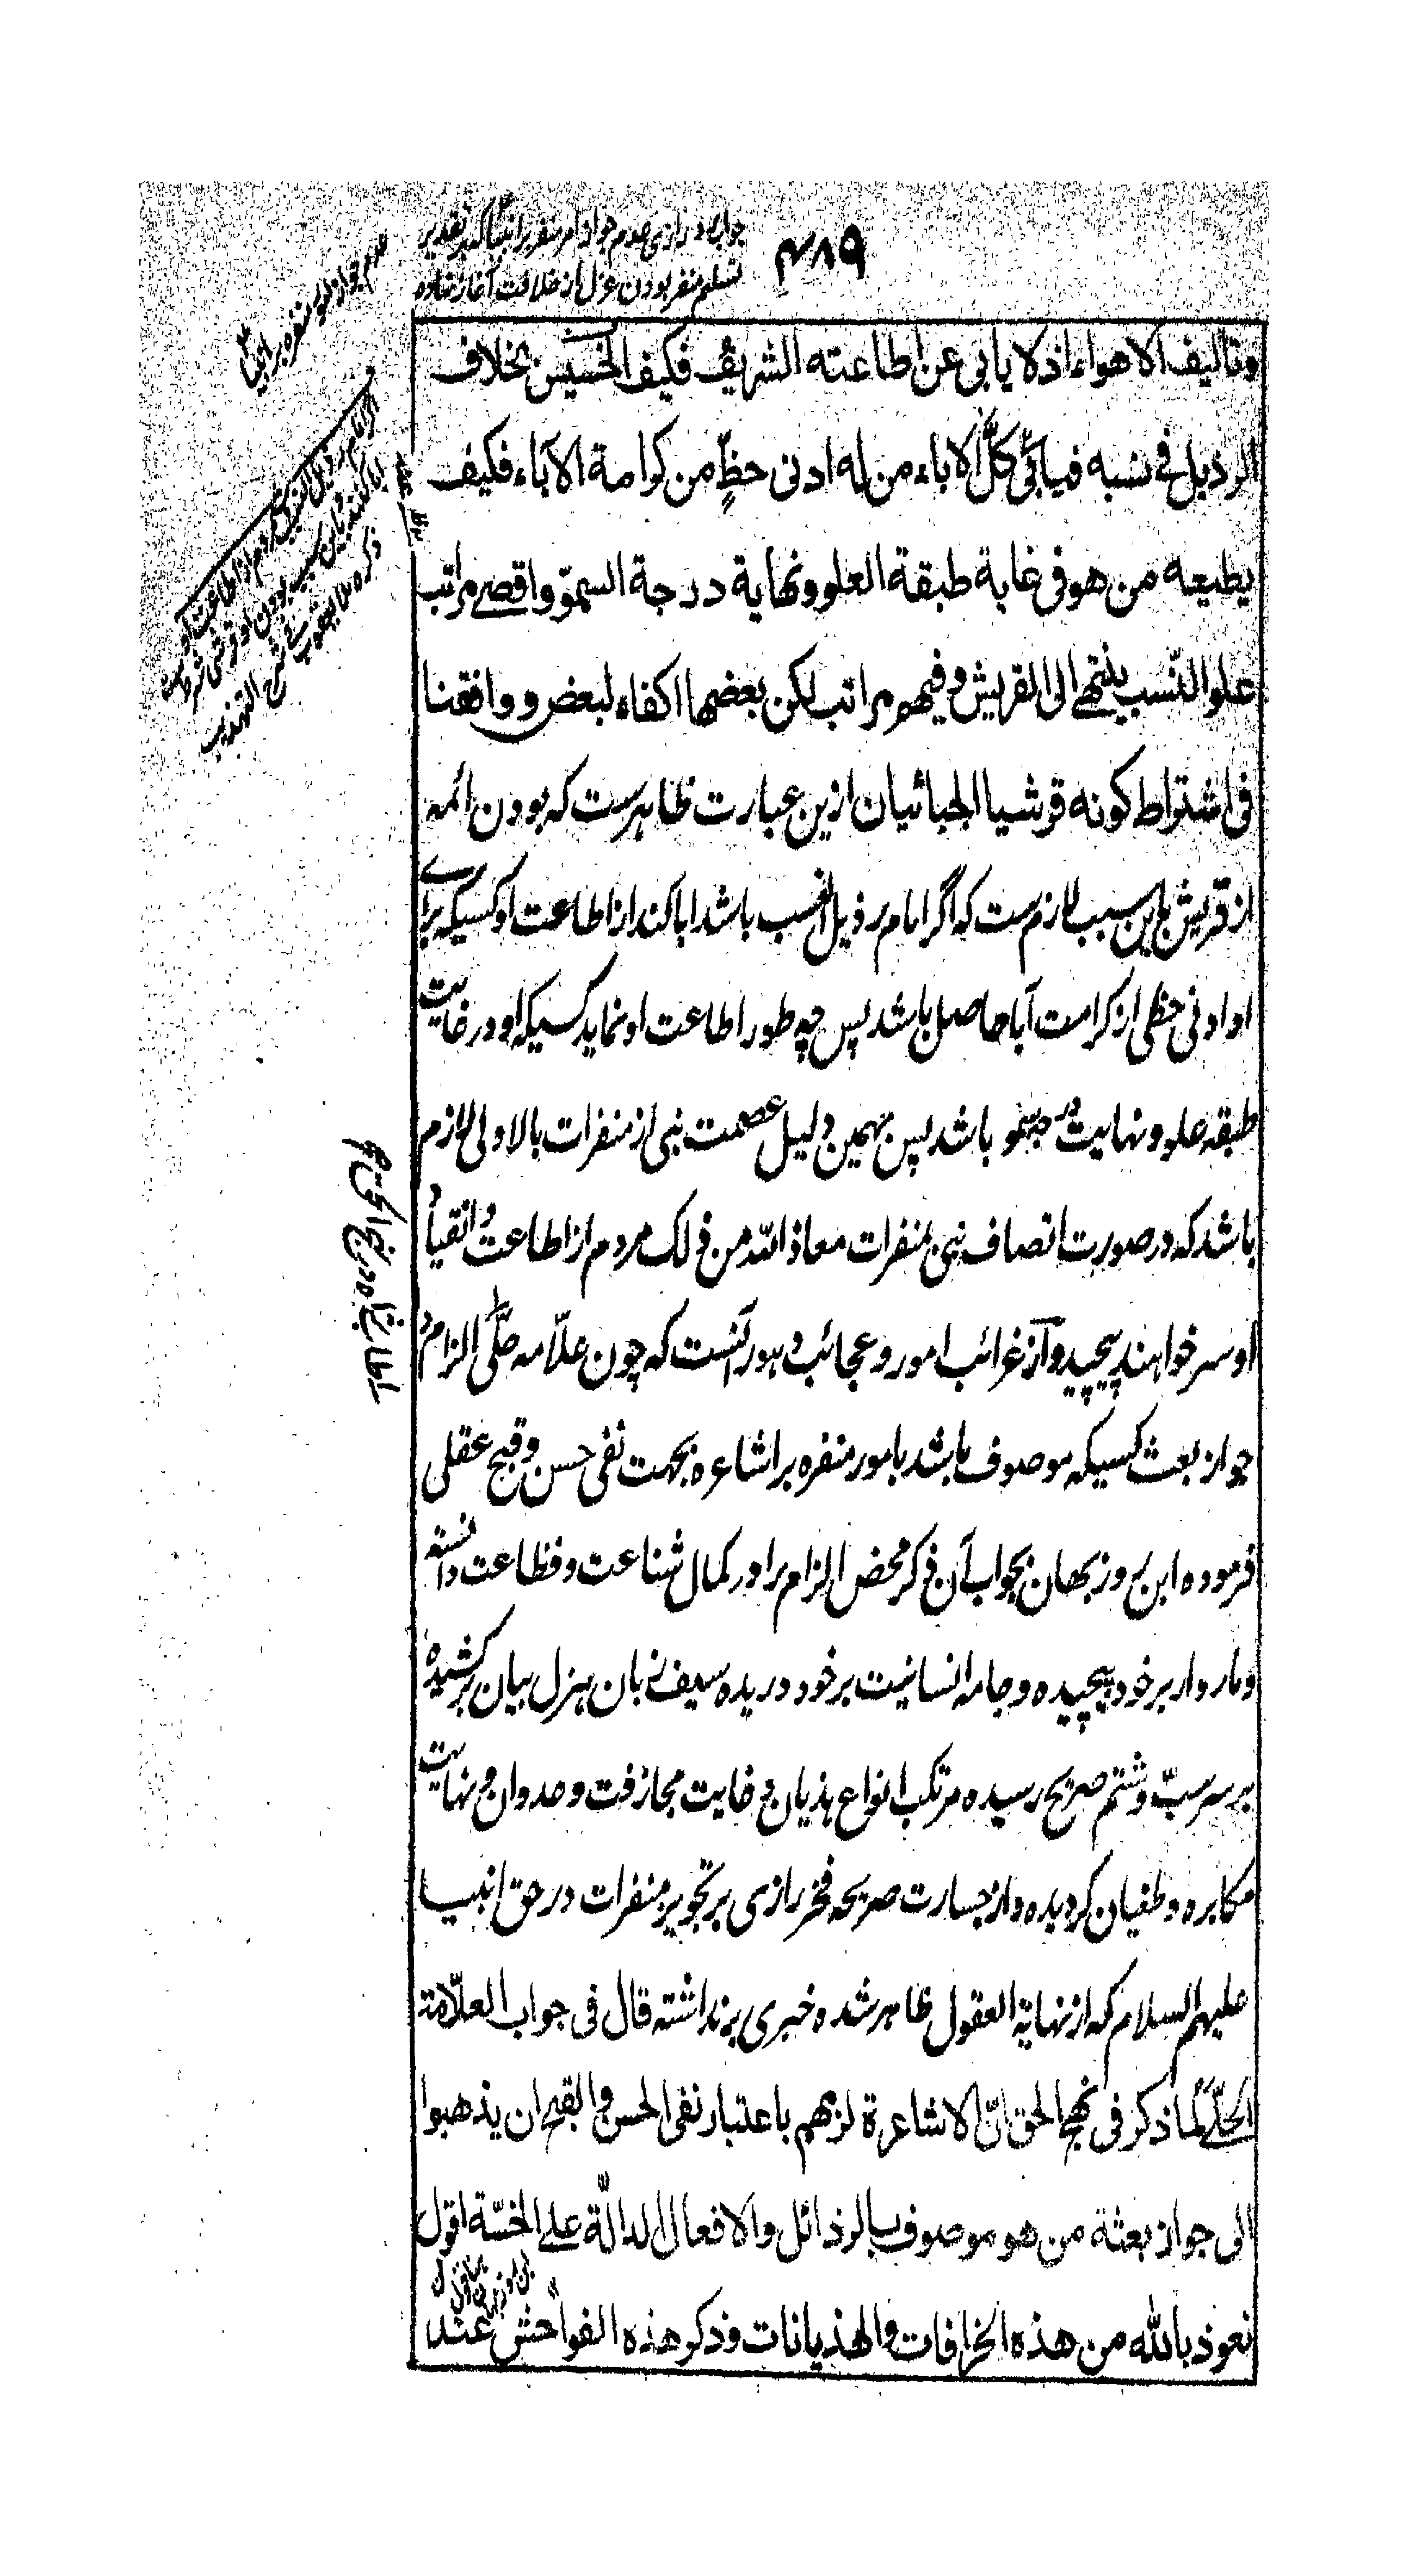 ۴۸۹
وتالیف الاهواء اذ لا یابی عن اطاعته الشریف فکیف الخسیس بخلاف
الرذیل فی نسبه فیابی کلّ الاباء من له ادنی حظٍّ من کرامة الآباء فکیف
یطیعه من هو فی غایة طبقة العلو ونهایة درجة السموّ واقصے مراتب
علو النّسب ینتهے الی القریش وفیهم مراتب لکن بعضها اکفاء لبعض ووافقنا
فی اشتراط کونه قرشیا الجبائیان ازین عبارت ظاهرست که بودن ائمه
از قریش باین سبب لازم ست که اگر امام رذیل النسب باشد ابا کند از اطاعت او کسیکه برای
او ادنی حظی از کرامت آبا حاصل باشد پس چه طور اطاعت او نماید کسیکه او در غایت
طبقه علو و نهایت درجه سمو باشد پس بهمین دلیل عصمت نبی از منفرات بالاولی لازم
باشد که در صورت اتصاف نبی بمنفرات معاذ الله من ذلک مردم از اطاعت و انقیاد
او سر خواهند پیچید و از غرائب امور و عجائب دهور آنست که چون علّامه حلّی الزام
جواز بعث کسیکه موصوف باشد بامور منفره بر اشاعره بجهت نفی حسن و قبح عقلی
فرموده ابن روزبهان بجواب آن ذکر محض الزام را در کمال شناعت و فظاعت دانسته
و مار وار بر خود پیچیده و جامه انسانیت بر خود دریده سیف زبان هزل بیان برکشیده
بر سر سبّ و شتم صریح رسیده مرتکب انواع هذیان و غایت مجازفت و عدوان و نهایت
مکابره و طغیان گردیده و از جسارت صریحه فخر رازی بر تجویز منفرات در حق انبیا
علیهم السلام که از نهایة العقول ظاهر شده خبری برنداشته قال فی جواب العلّامة
الحلّے لما ذکر فی نهج الحق انّ الاشاعرة لزمهم باعتبار نفی الحسن والقبح ان یذهبوا
الی جواز بعثة من هو موصوف بالرذائل والافعال الدالّة علے الخسّة اقول
نعوذ بالله من هذه الخرافات والهذیانات وذکر هذه الفواحش عند